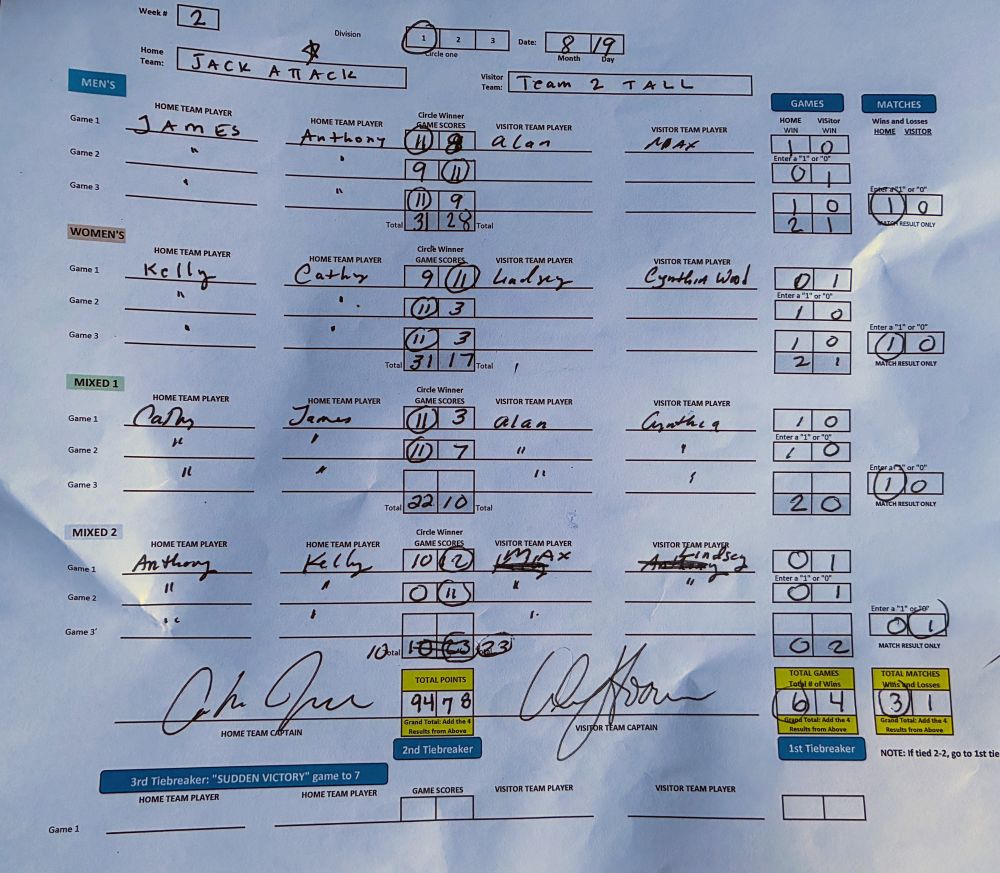 Week # 2
Division 1 2 3 Date: 8 19
Circle one Month Day
Home Team: JACK ATTACK Visitor Team: Team 2 TALL
MEN'S GAMES MATCHES
HOME TEAM PLAYER HOME TEAM PLAYER Circle Winner GAME SCORES VISITOR TEAM PLAYER VISITOR TEAM PLAYER HOME WIN Visitor WIN Wins and Losses HOME VISITOR
Game 1 JAMES Anthony 11 8 alan MAX 1 0
Enter a "1" or "0"
Game 2 " " 9 11 0 1
Enter a "1" or "0"
Game 3 " " 11 9 1 0 1 0
Total 31 28 Total 2 1 MATCH RESULT ONLY
WOMEN'S
HOME TEAM PLAYER HOME TEAM PLAYER Circle Winner GAME SCORES VISITOR TEAM PLAYER VISITOR TEAM PLAYER
Game 1 Kelly Cathy 9 11 Lindsey Cynthia Wood 0 1
Enter a "1" or "0"
Game 2 " " 11 3 1 0
Enter a "1" or "0"
Game 3 " 11 3 1 0 1 0
Total 31 17 Total 2 1 MATCH RESULT ONLY
MIXED 1
HOME TEAM PLAYER HOME TEAM PLAYER Circle Winner GAME SCORES VISITOR TEAM PLAYER VISITOR TEAM PLAYER
Game 1 Cathy James 11 3 alan Cynthia 1 0
Enter a "1" or "0"
Game 2 " " 11 7 " " 1 0
Enter a "1" or "0"
Game 3 " " " " 1 0
Total 22 10 Total 2 0 MATCH RESULT ONLY
MIXED 2
HOME TEAM PLAYER HOME TEAM PLAYER Circle Winner GAME SCORES VISITOR TEAM PLAYER VISITOR TEAM PLAYER
Game 1 Anthony Kelly 10 12 MAX Lindsey 0 1
Enter a "1" or "0"
Game 2 " " 0 11 " " 0 1
Enter a "1" or "0"
Game 3 " " " 0 1
10 Total 10 23 23 0 2 MATCH RESULT ONLY
TOTAL POINTS TOTAL GAMES Total # of Wins TOTAL MATCHES Wins and Losses
94 78 6 4 3 1
HOME TEAM CAPTAIN Grand Total: Add the 4 Results from Above VISITOR TEAM CAPTAIN Grand Total: Add the 4 Results from Above Grand Total: Add the 4 Results from Above
2nd Tiebreaker 1st Tiebreaker NOTE: If tied 2-2, go to 1st tie
3rd Tiebreaker: "SUDDEN VICTORY" game to 7
HOME TEAM PLAYER HOME TEAM PLAYER GAME SCORES VISITOR TEAM PLAYER VISITOR TEAM PLAYER
Game 1